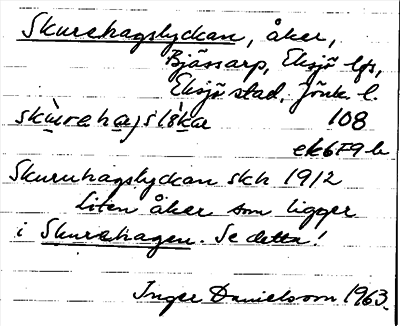 Skurehagslyckan, åker,
Bjässarp, Eksjö lfs,
Eksjö stad, Jönk. l.
108
ek6F9b
Skuruhagslyckan skh 1912
Liten åker som ligger
i Skurehagen. Se detta!
Inger Danielsson 1963.